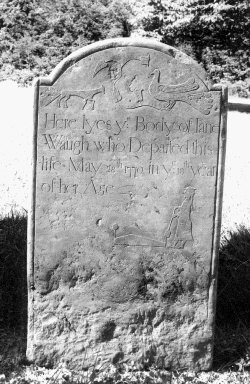 Here lyes yᵉ Body of Jane
Waugh who Departed this
life May 1770 in yᵉ year
of her Age